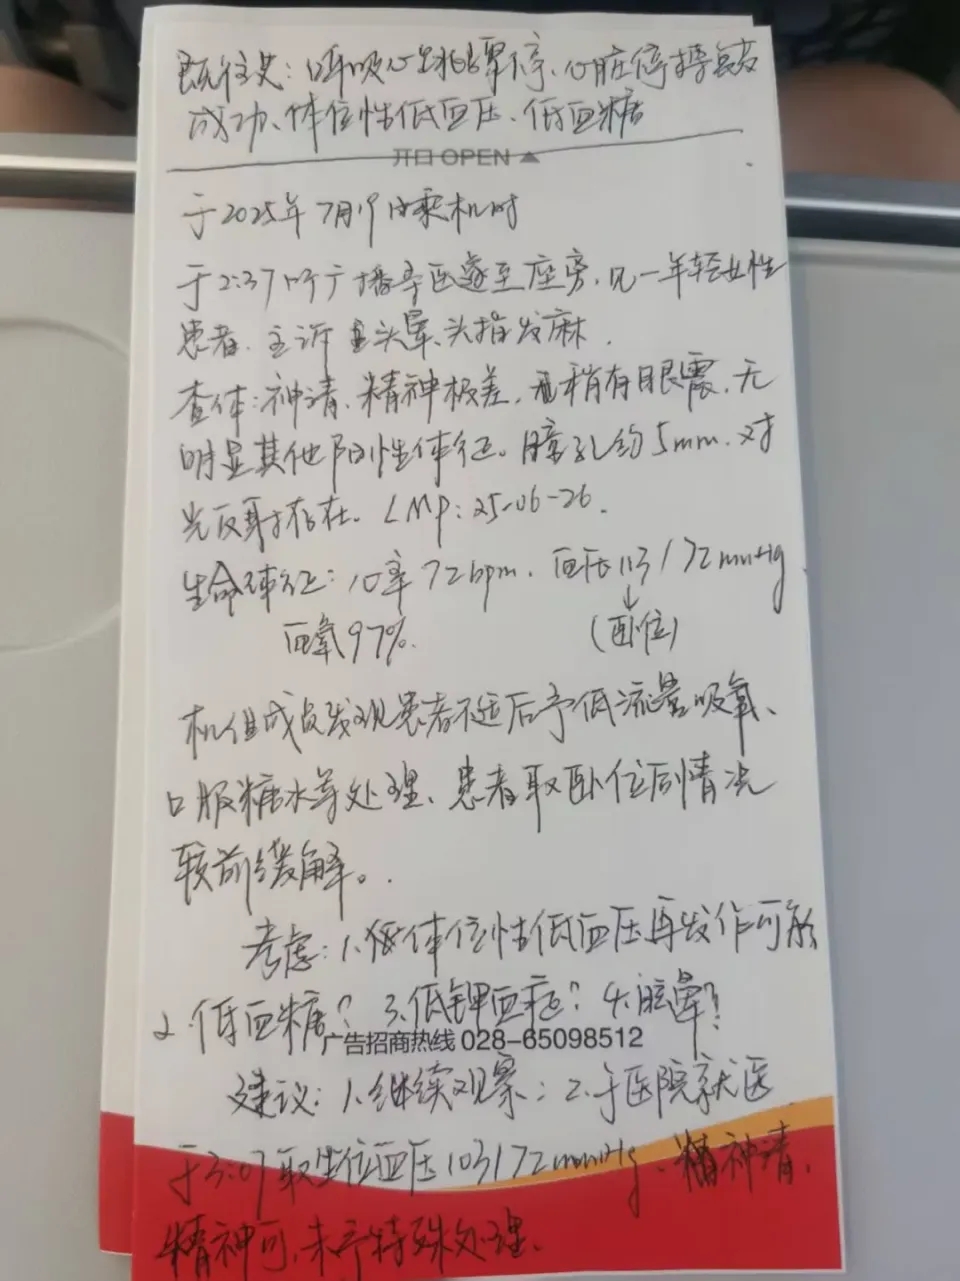 既往史：呼吸心跳骤停、心脏停搏复苏
成功、体位性低血压、低血糖
开口 OPEN
于2025年7月19日乘机时
于2:37听广播寻医遂至座旁，见一年轻女性
患者，主诉头晕、头指发麻。
查体：神清、精神极差，稍有眼震，无
明显其他阳性体征。瞳孔约5mm，对
光反射存在。LMP：25-06-26.
生命体征：心率72bpm，血压113/72mmHg
血氧97%. （卧位）
机组成员发现患者不适后予低流量吸氧、
口服糖水等处理、患者取卧位后情况
较前缓解。
考虑：1.体位性低血压再发作可能
2.低血糖？ 3.低钾血症？ 4.脑晕？
广告招商热线 028-65098512
建议：1.继续观察；2.于医院就医
于3:07取坐位血压103/72mmHg、精神清，
精神可，未予特殊处理。